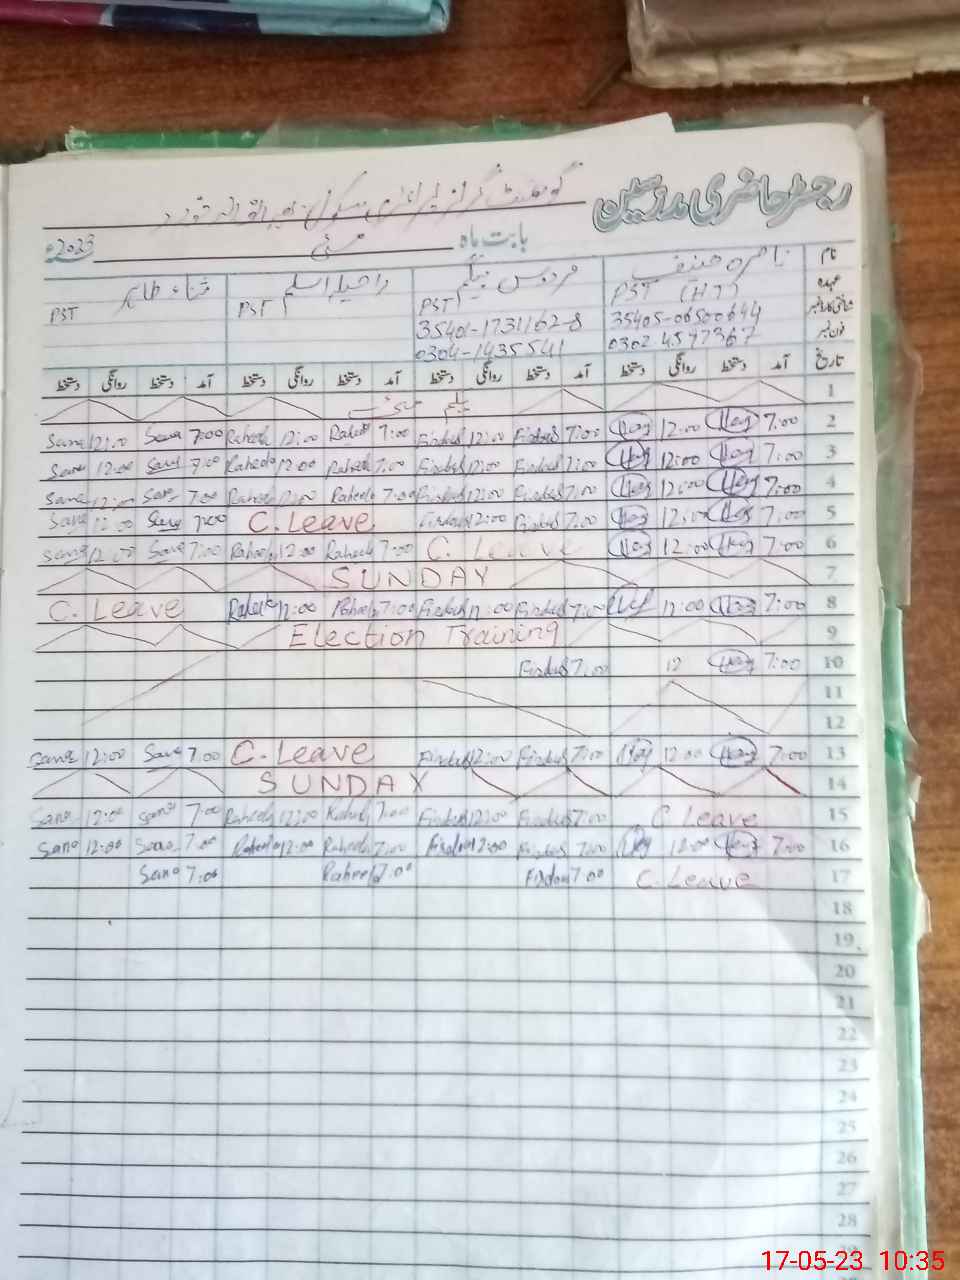 رجسٹر حاضری مدرسین گورنمنٹ گرلز پرائمری سکول
بابت ماہ مئی 2023ء
نام ناصرہ حنیف فردوس بیگم راحیلہ اسلم ثناء طاہر
عہدہ PST (HT) PST PST PST
شناختی کارڈ نمبر 35405-06500644 35401-1731162-8
فون نمبر 0302 4597367 0304-1435541
تاریخ آمد دستخط روانگی دستخط آمد دستخط روانگی دستخط آمد دستخط روانگی دستخط آمد دستخط روانگی دستخط
1
Sana 12:00 Sana 7:00 Raheela 12:00 Raheela 7:00 Firdous 12:00 Firdous 7:00 12:00 7:00 2
Sana 12:00 Sana 7:00 Raheela 12:00 Raheela 7:00 Firdous 12:00 Firdous 7:00 12:00 7:00 3
Sana 12:00 Sana 7:00 Raheela 12:00 Raheela 7:00 Firdous 12:00 Firdous 7:00 12:00 7:00 4
Sana 12:00 Sana 7:00 C.Leave Firdous 12:00 Firdous 7:00 12:00 7:00 5
Sana 12:00 Sana 7:00 Raheela 12:00 Raheela 7:00 C.Leave 12:00 7:00 6
SUNDAY 7
C.Leave Raheela 12:00 Raheela 7:00 Firdous 12:00 Firdous 7:00 12:00 7:00 8
Election Training 9
Firdous 7:00 12 7:00 10
11
12
Sana 12:00 Sana 7:00 C.Leave Firdous 12:00 Firdous 7:00 12:00 7:00 13
SUNDAY 14
Sana 12:00 Sana 7:00 Raheela 12:00 Raheela 7:00 Firdous 12:00 Firdous 7:00 C Leave 15
Sana 12:00 Sana 7:00 Raheela 12:00 Raheela 7:00 Firdous 12:00 Firdous 7:00 12:00 7:00 16
Sana 7:00 Raheela 7:00 Firdous 7:00 C.Leave 17
18
19
20
21
22
23
24
25
26
27
28
29
17-05-23 10:35